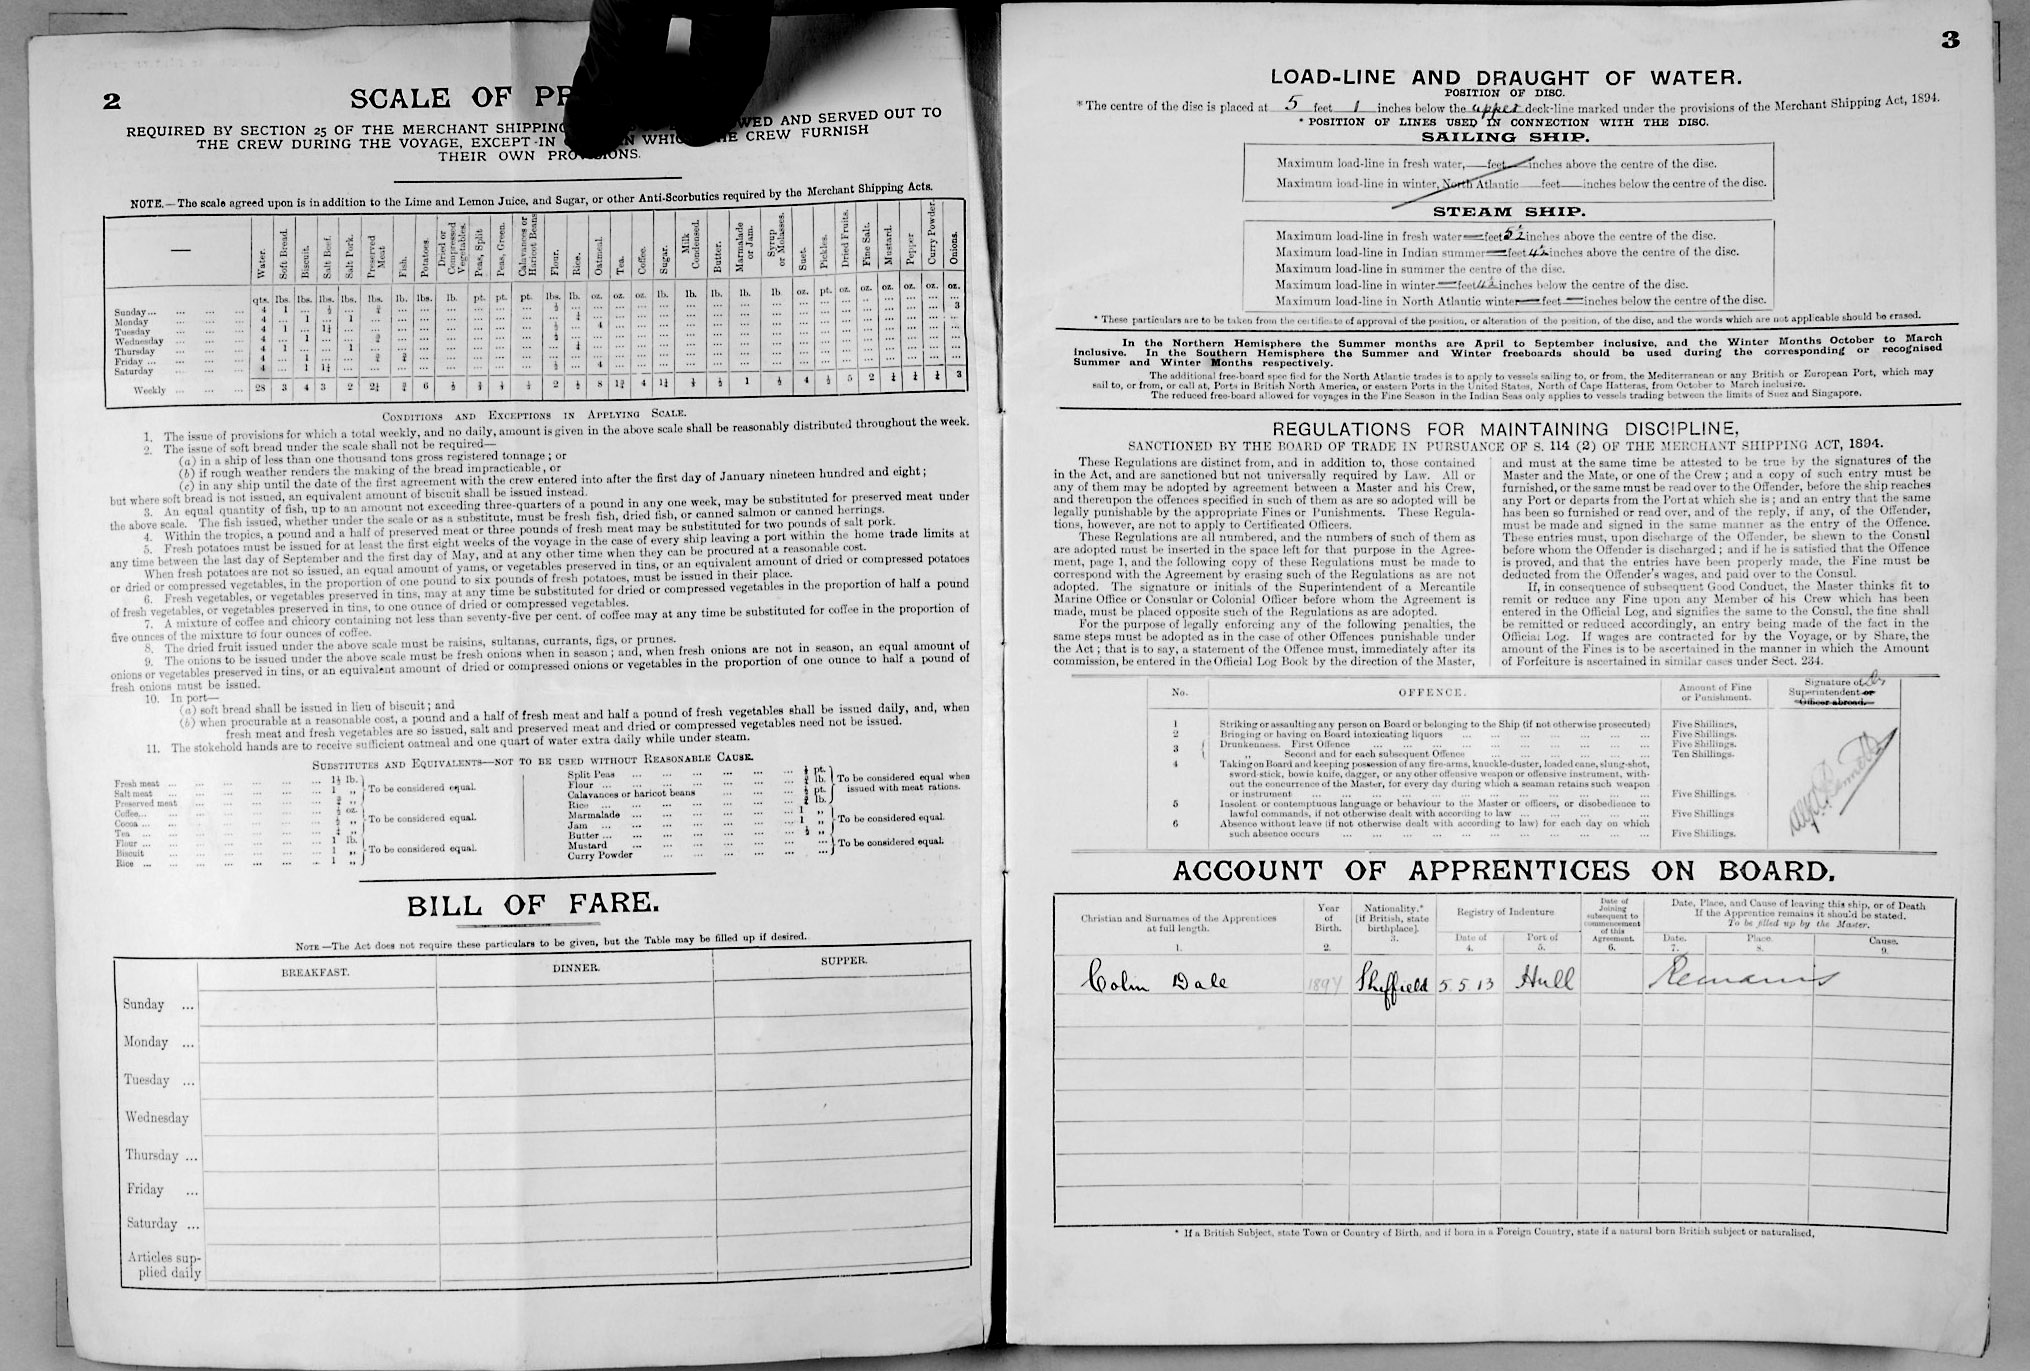 2
SCALE OF PR
REQUIRED BY SECTION 25 OF THE MERCHANT SHIPPING WED AND SERVED OUT TO
THE CREW DURING THE VOYAGE, EXCEPT IN IN WHICH THE CREW FURNISH
THEIR OWN PROVISIONS.
NOTE.—The scale agreed upon is in addition to the Lime and Lemon Juice, and Sugar, or other Anti-Scorbutics required by the Merchant Shipping Acts.
Water. Soft Bread. Biscuit. Salt Beef. Salt Pork. Preserved Meat Fish. Potatoes. Dried or Compressed Vegetables. Peas, Split Peas, Green. Calavances or Haricot Beans Flour. Rice. Oatmeal. Tea. Coffee. Sugar. Milk Condensed. Butter. Marmalade or Jam. Syrup or Molasses. Suet. Pickles. Dried Fruits. Fine Salt. Mustard. Pepper Curry Powder. Onions.
qts. lbs. lbs. lbs. lbs. lbs. lb. lbs. lb. pt. pt. pt. lbs. lb. oz. oz. oz. lb. lb. lb. lb. lb. oz. pt. oz. oz. oz. oz. oz. oz.
Sunday... 4 1
Monday 4 1 1
Tuesday 4 1 1¼ 4
Wednesday 4 1
Thursday 4 1 1
Friday ... 4 1
Saturday 4 1 1¼ 4
Weekly 28 3 4 3 2 2¼ ¾ 6 2 8 1¾ 4 1¼ 1 4 5 2 3
CONDITIONS AND EXCEPTIONS IN APPLYING SCALE.
1. The issue of provisions for which a total weekly, and no daily, amount is given in the above scale shall be reasonably distributed throughout the week.
2. The issue of soft bread under the scale shall not be required—
(a) in a ship of less than one thousand tons gross registered tonnage; or
(b) if rough weather renders the making of the bread impracticable, or
(c) in any ship until the date of the first agreement with the crew entered into after the first day of January nineteen hundred and eight;
but where soft bread is not issued, an equivalent amount of biscuit shall be issued instead.
3. An equal quantity of fish, up to an amount not exceeding three-quarters of a pound in any one week, may be substituted for preserved meat under
the above scale. The fish issued, whether under the scale or as a substitute, must be fresh fish, dried fish, or canned salmon or canned herrings.
4. Within the tropics, a pound and a half of preserved meat or three pounds of fresh meat may be substituted for two pounds of salt pork.
5. Fresh potatoes must be issued for at least the first eight weeks of the voyage in the case of every ship leaving a port within the home trade limits at
any time between the last day of September and the first day of May, and at any other time when they can be procured at a reasonable cost.
When fresh potatoes are not so issued, an equal amount of yams, or vegetables preserved in tins, or an equivalent amount of dried or compressed potatoes
or dried or compressed vegetables, in the proportion of one pound to six pounds of fresh potatoes, must be issued in their place.
6. Fresh vegetables, or vegetables preserved in tins, may at any time be substituted for dried or compressed vegetables in the proportion of half a pound
of fresh vegetables, or vegetables preserved in tins, to one ounce of dried or compressed vegetables.
7. A mixture of coffee and chicory containing not less than seventy-five per cent. of coffee may at any time be substituted for coffee in the proportion of
five ounces of the mixture to four ounces of coffee.
8. The dried fruit issued under the above scale must be raisins, sultanas, currants, figs, or prunes.
9. The onions to be issued under the above scale must be fresh onions when in season; and, when fresh onions are not in season, an equal amount of
onions or vegetables preserved in tins, or an equivalent amount of dried or compressed onions or vegetables in the proportion of one ounce to half a pound of
fresh onions must be issued.
10. In port—
(a) soft bread shall be issued in lieu of biscuit; and
(b) when procurable at a reasonable cost, a pound and a half of fresh meat and half a pound of fresh vegetables shall be issued daily, and, when
fresh meat and fresh vegetables are so issued, salt and preserved meat and dried or compressed vegetables need not be issued.
11. The stokehold hands are to receive sufficient oatmeal and one quart of water extra daily while under steam.
SUBSTITUTES AND EQUIVALENTS—NOT TO BE USED WITHOUT REASONABLE CAUSE.
Fresh meat 1½ lb.
Salt meat 1 „ To be considered equal.
Preserved meat ¾ „
Coffee... ½ oz.
Cocoa ... ½ „ To be considered equal.
Tea ... ¼ „
Flour ... 1 lb.
Biscuit 1 „ To be considered equal.
Rice ... 1 „
Split Peas pt.
Flour ... lb. To be considered equal when
Calavances or haricot beans pt. issued with meat rations.
Rice ... lb.
Marmalade 1 „
Jam 1 „ To be considered equal.
Butter ... ½ „
Mustard
Curry Powder To be considered equal.
BILL OF FARE.
NOTE—The Act does not require these particulars to be given, but the Table may be filled up if desired.
BREAKFAST. DINNER. SUPPER.
Sunday ...
Monday ...
Tuesday ...
Wednesday
Thursday ...
Friday ...
Saturday ...
Articles sup-
plied daily
3
LOAD-LINE AND DRAUGHT OF WATER.
POSITION OF DISC.
*The centre of the disc is placed at 5 feet 1 inches below the upper deck-line marked under the provisions of the Merchant Shipping Act, 1894.
* POSITION OF LINES USED IN CONNECTION WITH THE DISC.
SAILING SHIP.
Maximum load-line in fresh water, feet inches above the centre of the disc.
Maximum load-line in winter, North Atlantic feet inches below the centre of the disc.
STEAM SHIP.
Maximum load-line in fresh water feet 5½ inches above the centre of the disc.
Maximum load-line in Indian summer feet 4½ inches above the centre of the disc.
Maximum load-line in summer the centre of the disc.
Maximum load-line in winter feet 4½ inches below the centre of the disc.
Maximum load-line in North Atlantic winter feet inches below the centre of the disc.
* These particulars are to be taken from the certificate of approval of the position, or alteration of the position, of the disc, and the words which are not applicable should be erased.
In the Northern Hemisphere the Summer months are April to September inclusive, and the Winter Months October to March
inclusive. In the Southern Hemisphere the Summer and Winter freeboards should be used during the corresponding or recognised
Summer and Winter Months respectively.
The additional free-board specified for the North Atlantic trades is to apply to vessels sailing to, or from, the Mediterranean or any British or European Port, which may
sail to, or from, or call at, Ports in British North America, or eastern Ports in the United States, North of Cape Hatteras, from October to March inclusive.
The reduced free-board allowed for voyages in the Fine Season in the Indian Seas only applies to vessels trading between the limits of Suez and Singapore.
REGULATIONS FOR MAINTAINING DISCIPLINE,
SANCTIONED BY THE BOARD OF TRADE IN PURSUANCE OF S. 114 (2) OF THE MERCHANT SHIPPING ACT, 1894.
These Regulations are distinct from, and in addition to, those contained
in the Act, and are sanctioned but not universally required by Law. All or
any of them may be adopted by agreement between a Master and his Crew,
and thereupon the offences specified in such of them as are so adopted will be
legally punishable by the appropriate Fines or Punishments. These Regula-
tions, however, are not to apply to Certificated Officers.
These Regulations are all numbered, and the numbers of such of them as
are adopted must be inserted in the space left for that purpose in the Agree-
ment, page 1, and the following copy of these Regulations must be made to
correspond with the Agreement by erasing such of the Regulations as are not
adopted. The signature or initials of the Superintendent of a Mercantile
Marine Office or Consular or Colonial Officer before whom the Agreement is
made, must be placed opposite such of the Regulations as are adopted.
For the purpose of legally enforcing any of the following penalties, the
same steps must be adopted as in the case of other Offences punishable under
the Act; that is to say, a statement of the Offence must, immediately after its
commission, be entered in the Official Log Book by the direction of the Master,
and must at the same time be attested to be true by the signatures of the
Master and the Mate, or one of the Crew; and a copy of such entry must be
furnished, or the same must be read over to the Offender, before the ship reaches
any Port or departs from the Port at which she is; and an entry that the same
has been so furnished or read over, and of the reply, if any, of the Offender,
must be made and signed in the same manner as the entry of the Offence.
These entries must, upon discharge of the Offender, be shewn to the Consul
before whom the Offender is discharged; and if he is satisfied that the Offence
is proved, and that the entries have been properly made, the Fine must be
deducted from the Offender's wages, and paid over to the Consul.
If, in consequence of subsequent Good Conduct, the Master thinks fit to
remit or reduce any Fine upon any Member of his Crew which has been
entered in the Official Log, and signifies the same to the Consul, the fine shall
be remitted or reduced accordingly, an entry being made of the fact in the
Official Log. If wages are contracted for by the Voyage, or by Share, the
amount of the Fines is to be ascertained in the manner in which the Amount
of Forfeiture is ascertained in similar cases under Sect. 234.
No. OFFENCE. Amount of Fine or Punishment. Signature of Superintendent or Officer abroad.
1 Striking or assaulting any person on Board or belonging to the Ship (if not otherwise prosecuted) Five Shillings,
2 Bringing or having on Board intoxicating liquors Five Shillings.
3 Drunkenness. First Offence Five Shillings.
„ Second and for each subsequent Offence Ten Shillings.
4 Taking on Board and keeping possession of any fire-arms, knuckle-duster, loaded cane, slung-shot,
sword-stick, bowie knife, dagger, or any other offensive weapon or offensive instrument, with-
out the concurrence of the Master, for every day during which a seaman retains such weapon
or instrument Five Shillings.
5 Insolent or contemptuous language or behaviour to the Master or officers, or disobedience to
lawful commands, if not otherwise dealt with according to law Five Shillings
6 Absence without leave (if not otherwise dealt with according to law) for each day on which
such absence occurs Five Shillings.
ACCOUNT OF APPRENTICES ON BOARD.
Christian and Surnames of the Apprentices at full length. 1.
Year of Birth. 2.
Nationality.* [if British, state birthplace]. 3.
Registry of Indenture
Date of 4. Port of 5.
Date of Joining subsequent to commencement of this Agreement. 6.
Date, Place, and Cause of leaving this ship, or of Death
If the Apprentice remains it should be stated.
To be filled up by the Master.
Date. 7. Place. 8. Cause. 9.
Colin Dale 1894 Sheffield 5 5 13 Hull Remains
* If a British Subject, state Town or Country of Birth, and if born in a Foreign Country, state if a natural born British subject or naturalised,